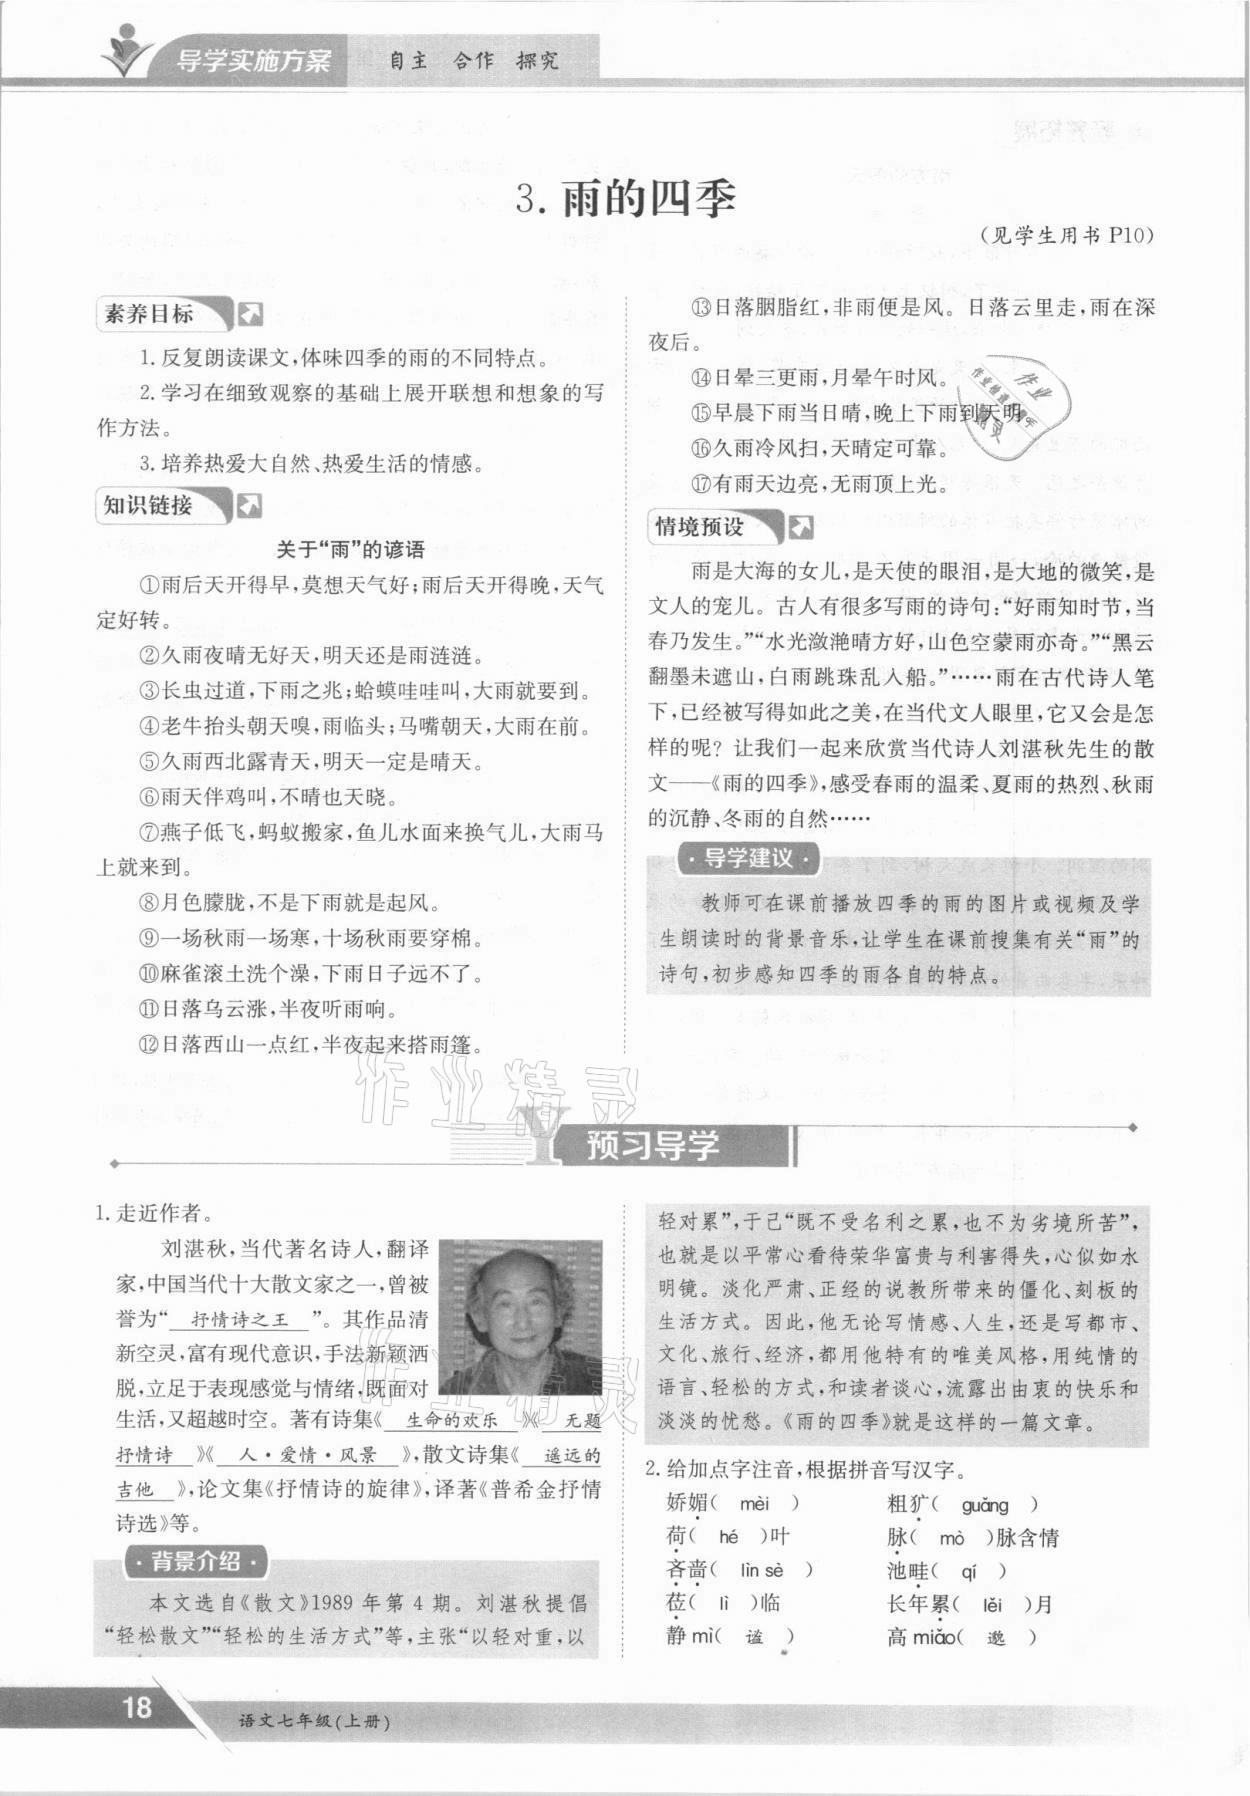 导学实施方案 自主 合作 探究
3. 雨的四季
(见学生用书 P10)
素养目标
1. 反复朗读课文,体味四季的雨的不同特点。
2. 学习在细致观察的基础上展开联想和想象的写
作方法。
3. 培养热爱大自然、热爱生活的情感。
知识链接
关于“雨”的谚语
①雨后天开得早,莫想天气好;雨后天开得晚,天气
定好转。
②久雨夜晴无好天,明天还是雨涟涟。
③长虫过道,下雨之兆;蛤蟆哇哇叫,大雨就要到。
④老牛抬头朝天嗅,雨临头;马嘴朝天,大雨在前。
⑤久雨西北露青天,明天一定是晴天。
⑥雨天伴鸡叫,不晴也天晓。
⑦燕子低飞,蚂蚁搬家,鱼儿水面来换气儿,大雨马
上就来到。
⑧月色朦胧,不是下雨就是起风。
⑨一场秋雨一场寒,十场秋雨要穿棉。
⑩麻雀滚土洗个澡,下雨日子远不了。
⑪日落乌云涨,半夜听雨响。
⑫日落西山一点红,半夜起来搭雨篷。
⑬日落胭脂红,非雨便是风。日落云里走,雨在深
夜后。
⑭日晕三更雨,月晕午时风。
⑮早晨下雨当日晴,晚上下雨到天明。
⑯久雨冷风扫,天晴定可靠。
⑰有雨天边亮,无雨顶上光。
情境预设
雨是大海的女儿,是天使的眼泪,是大地的微笑,是
文人的宠儿。古人有很多写雨的诗句:“好雨知时节,当
春乃发生。”“水光潋滟晴方好,山色空蒙雨亦奇。”“黑云
翻墨未遮山,白雨跳珠乱入船。”……雨在古代诗人笔
下,已经被写得如此之美,在当代文人眼里,它又会是怎
样的呢?让我们一起来欣赏当代诗人刘湛秋先生的散
文——《雨的四季》,感受春雨的温柔、夏雨的热烈、秋雨
的沉静、冬雨的自然……
· 导学建议 ·
教师可在课前播放四季的雨的图片或视频及学
生朗读时的背景音乐,让学生在课前搜集有关“雨”的
诗句,初步感知四季的雨各自的特点。
预习导学
1. 走近作者。
刘湛秋,当代著名诗人,翻译
家,中国当代十大散文家之一,曾被
誉为“ 抒情诗之王 ”。其作品清
新空灵,富有现代意识,手法新颖洒
脱,立足于表现感觉与情绪,既面对
生活,又超越时空。著有诗集《 生命的欢乐 》《 无题
抒情诗 》《 人·爱情·风景 》,散文诗集《 遥远的
吉他 》,论文集《抒情诗的旋律》,译著《普希金抒情
诗选》等。
· 背景介绍 ·
本文选自《散文》1989 年第 4 期。刘湛秋提倡
“轻松散文”“轻松的生活方式”等,主张“以轻对重,以
轻对累”,于己“既不受名利之累,也不为劣境所苦”,
也就是以平常心看待荣华富贵与利害得失,心似如水
明镜。淡化严肃、正经的说教所带来的僵化、刻板的
生活方式。因此,他无论写情感、人生,还是写都市、
文化、旅行、经济,都用他特有的唯美风格,用纯情的
语言、轻松的方式,和读者谈心,流露出由衷的快乐和
淡淡的忧愁。《雨的四季》就是这样的一篇文章。
2. 给加点字注音,根据拼音写汉字。
娇媚( mèi ) 粗犷( guǎng )
荷( hé )叶 脉( mò )脉含情
吝啬( lìn sè ) 池畦( qí )
莅( lì )临 长年累( lěi )月
静 mì( 谧 ) 高 miǎo( 邈 )
18 语文七年级(上册)
作业精灵
作业精灵
作业
作业精灵